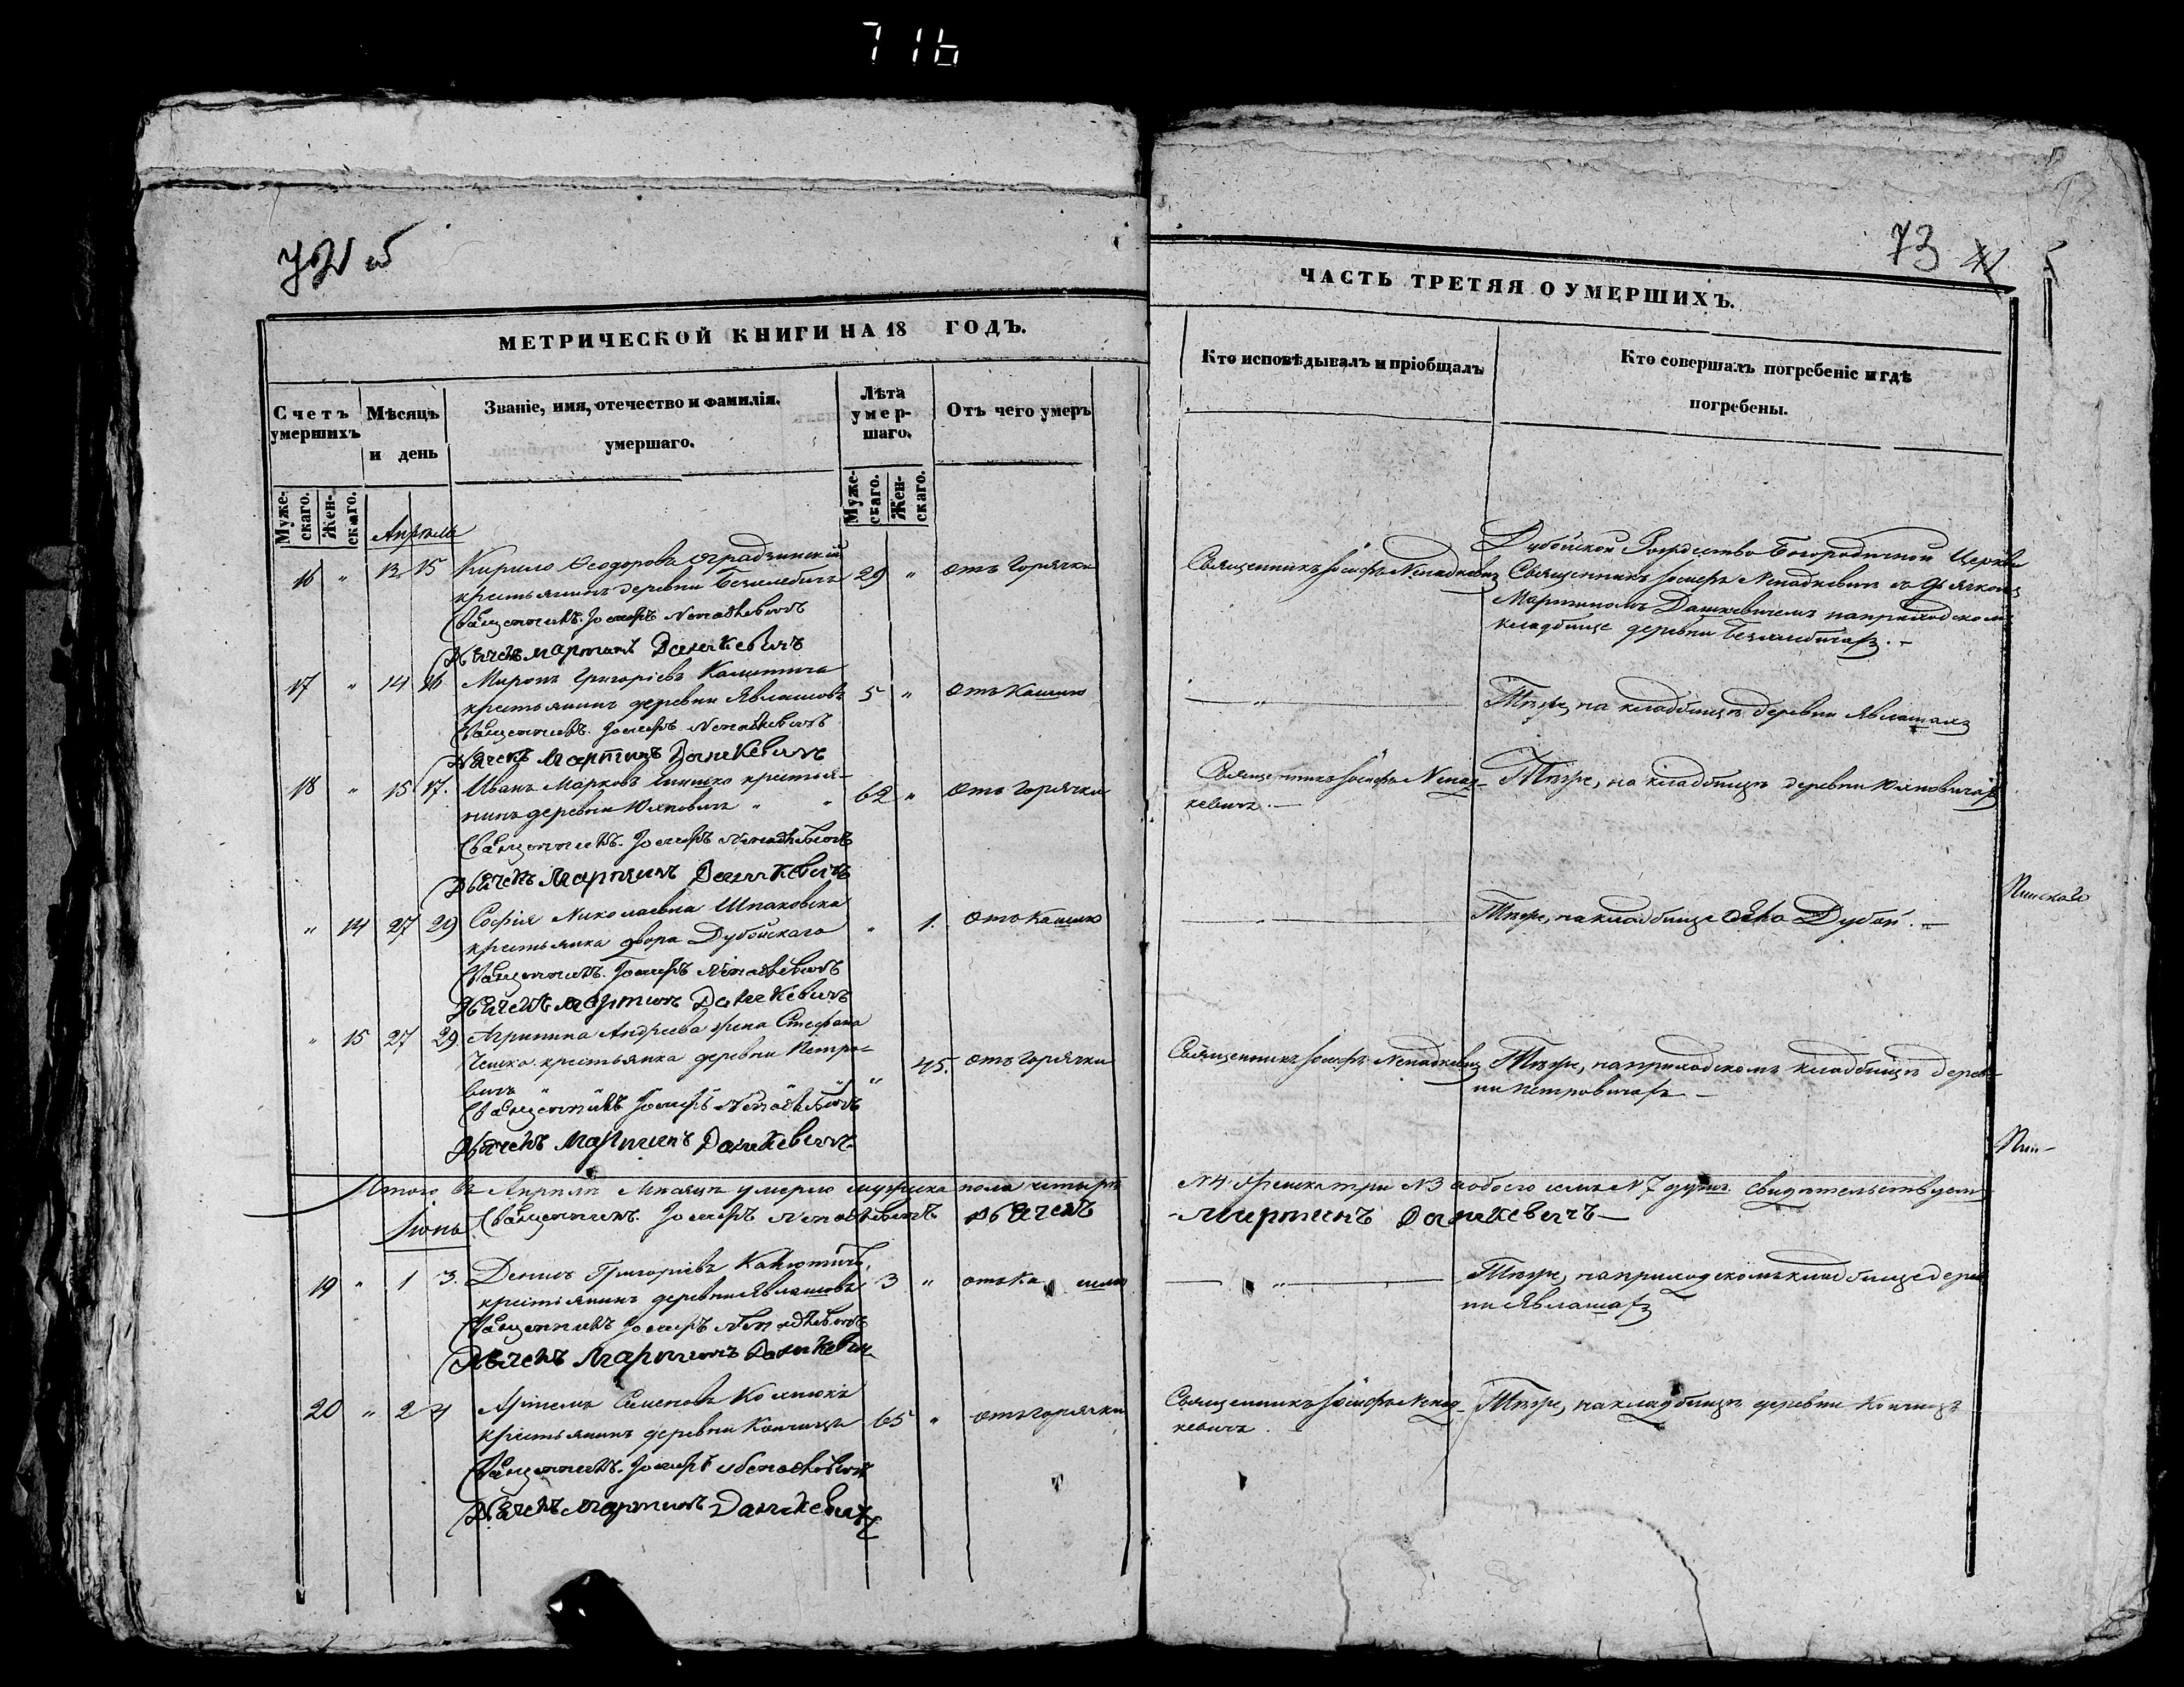 716
73
МЕТРИЧЕСКОЙ КНИГИ НА 18 ГОДЪ.
Счетъ умершихъ
Мѣсяцъ и день
Званіе, имя, отечество и фамилія.
умершаго.
Лѣта умер-
шаго.
Отъ чего умеръ
Муже-
скаго.
Жен-
скаго.
Муже-
скаго.
Жен-
скаго.
Апрѣль
16 " 13 15 Кирило Ѳеодоровъ
крестьянинъ деревни 29 " отъ горячки
Священникъ Іосифъ Ненадкевичъ
Дьячекъ Мартинъ Дашкевичъ
17 " 14 16 Миронъ Григоріевъ
крестьянинъ деревни Явлашовъ 5 " отъ кашлю
Священникъ Іосифъ Ненадкевичъ
Дьячекъ Мартинъ Дашкевичъ
18 " 15 17. Иванъ Марковъ крестья-
нинъ деревни Юхновичъ " " 62 " отъ горячки
Священникъ Іосифъ Ненадкевичъ
Дьячекъ Мартинъ Дашкевичъ
" 14 27 29 Софія Николаевна Шпаковска
крестьянка двора Дубойскаго " 1. отъ кашлю
Священникъ Іосифъ Ненадкевичъ
Дьячекъ Мартинъ Дашкевичъ
" 15 27 29. Агрипина Андреева жена Стефана
крестьянка деревни Петро-
вичъ " 45. отъ горячки
Священникъ Іосифъ Ненадкевичъ
Дьячекъ Мартинъ Дашкевичъ
Итого въ Апрѣлѣ Мѣсяцѣ умерло мужска пола четыре
Іюнь Священникъ Іосифъ Ненадкевичъ Дьячекъ
19 " 1 3. Денисъ Григоріевъ
крестьянинъ деревни Явлашовъ 3 " отъ кашлю
Священникъ Іосифъ Ненадкевичъ
Дьячекъ Мартинъ Дашкевичъ
20 " 2 4 Артемъ Семеновъ
крестьянинъ деревни Кончицъ 65 " отъ горячки
Священникъ Іосифъ Ненадкевичъ
Дьячекъ Мартинъ Дашкевичъ
ЧАСТЬ ТРЕТЯЯ О УМЕРШИХЪ.
Кто исповѣдывалъ и пріобщалъ
Кто совершалъ погребеніе и гдѣ
погребены.
Дубойской Рождество Богородичной Церкви
Священникъ Іосифъ Ненадкевичъ Священникъ Іосифъ Ненадкевичъ съ Дьячкомъ
Мартиномъ Дашкевичемъ на приходскомъ
кладбище деревни
" Тѣже, на кладбищѣ деревни Явлашахъ
Священникъ Іосифъ Ненад-
кевичъ. Тѣже, на кладбищѣ деревни Юхновичахъ
" Тѣже, на кладбище Дубой.
Пинскаго
Священникъ Іосифъ Ненадкевичъ Тѣже, на приходскомъ кладбищѣ дерев-
ни Петровичахъ
Пин-
N 4 Женска три N 3 а обоего N 7 душъ. свидѣтельствуемъ
Мартинъ Дашкевичъ
" Тѣже, на приходскомъ кладбище дерев-
ни Явлашахъ
Священникъ Іосифъ Ненад-
кевичъ. Тѣже, на кладбищѣ деревни Кончицъ